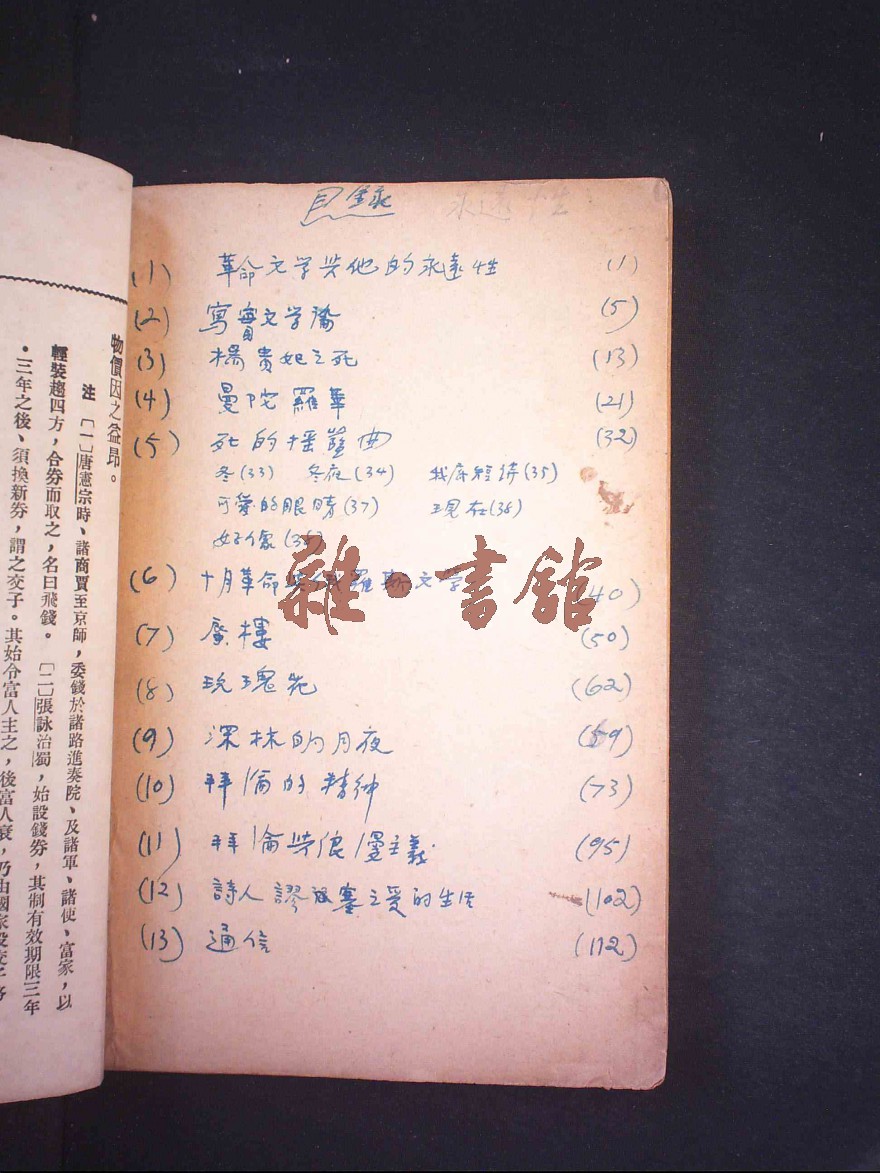 目錄
永遠性
(1) 革命文学与他的永遠性 (1)
(2) 寫實文学論 (5)
(3) 楊貴妃之死 (13)
(4) 曼陀羅華 (21)
(5) 死的摇藍曲 (32)
冬(33) 冬夜(34) (35)
可愛的眼睛(37) 現在(38)
好像
(6) 十月革命與俄羅斯文学 (40)
(7) 蜃樓 (50)
(8) 玫瑰花 (62)
(9) 深林的月夜 (69)
(10) 拜倫的精神 (73)
(11) 拜倫与浪漫主義 (95)
(12) 詩人謬塞之愛的生活 (102)
(13) 通信 (112)
雜·書館
物價因之益昂。
注 〔一〕唐憲宗時、諸商賈至京師，委錢於諸路進奏院、及諸軍、諸使、富家，以
輕裝趨四方，合券而取之，名曰飛錢。 〔二〕張詠治蜀，始設錢券，其制有效期限三年
。三年之後、須換新券，謂之交子。其始令富人主之，後富人衰，乃由國家設交子務